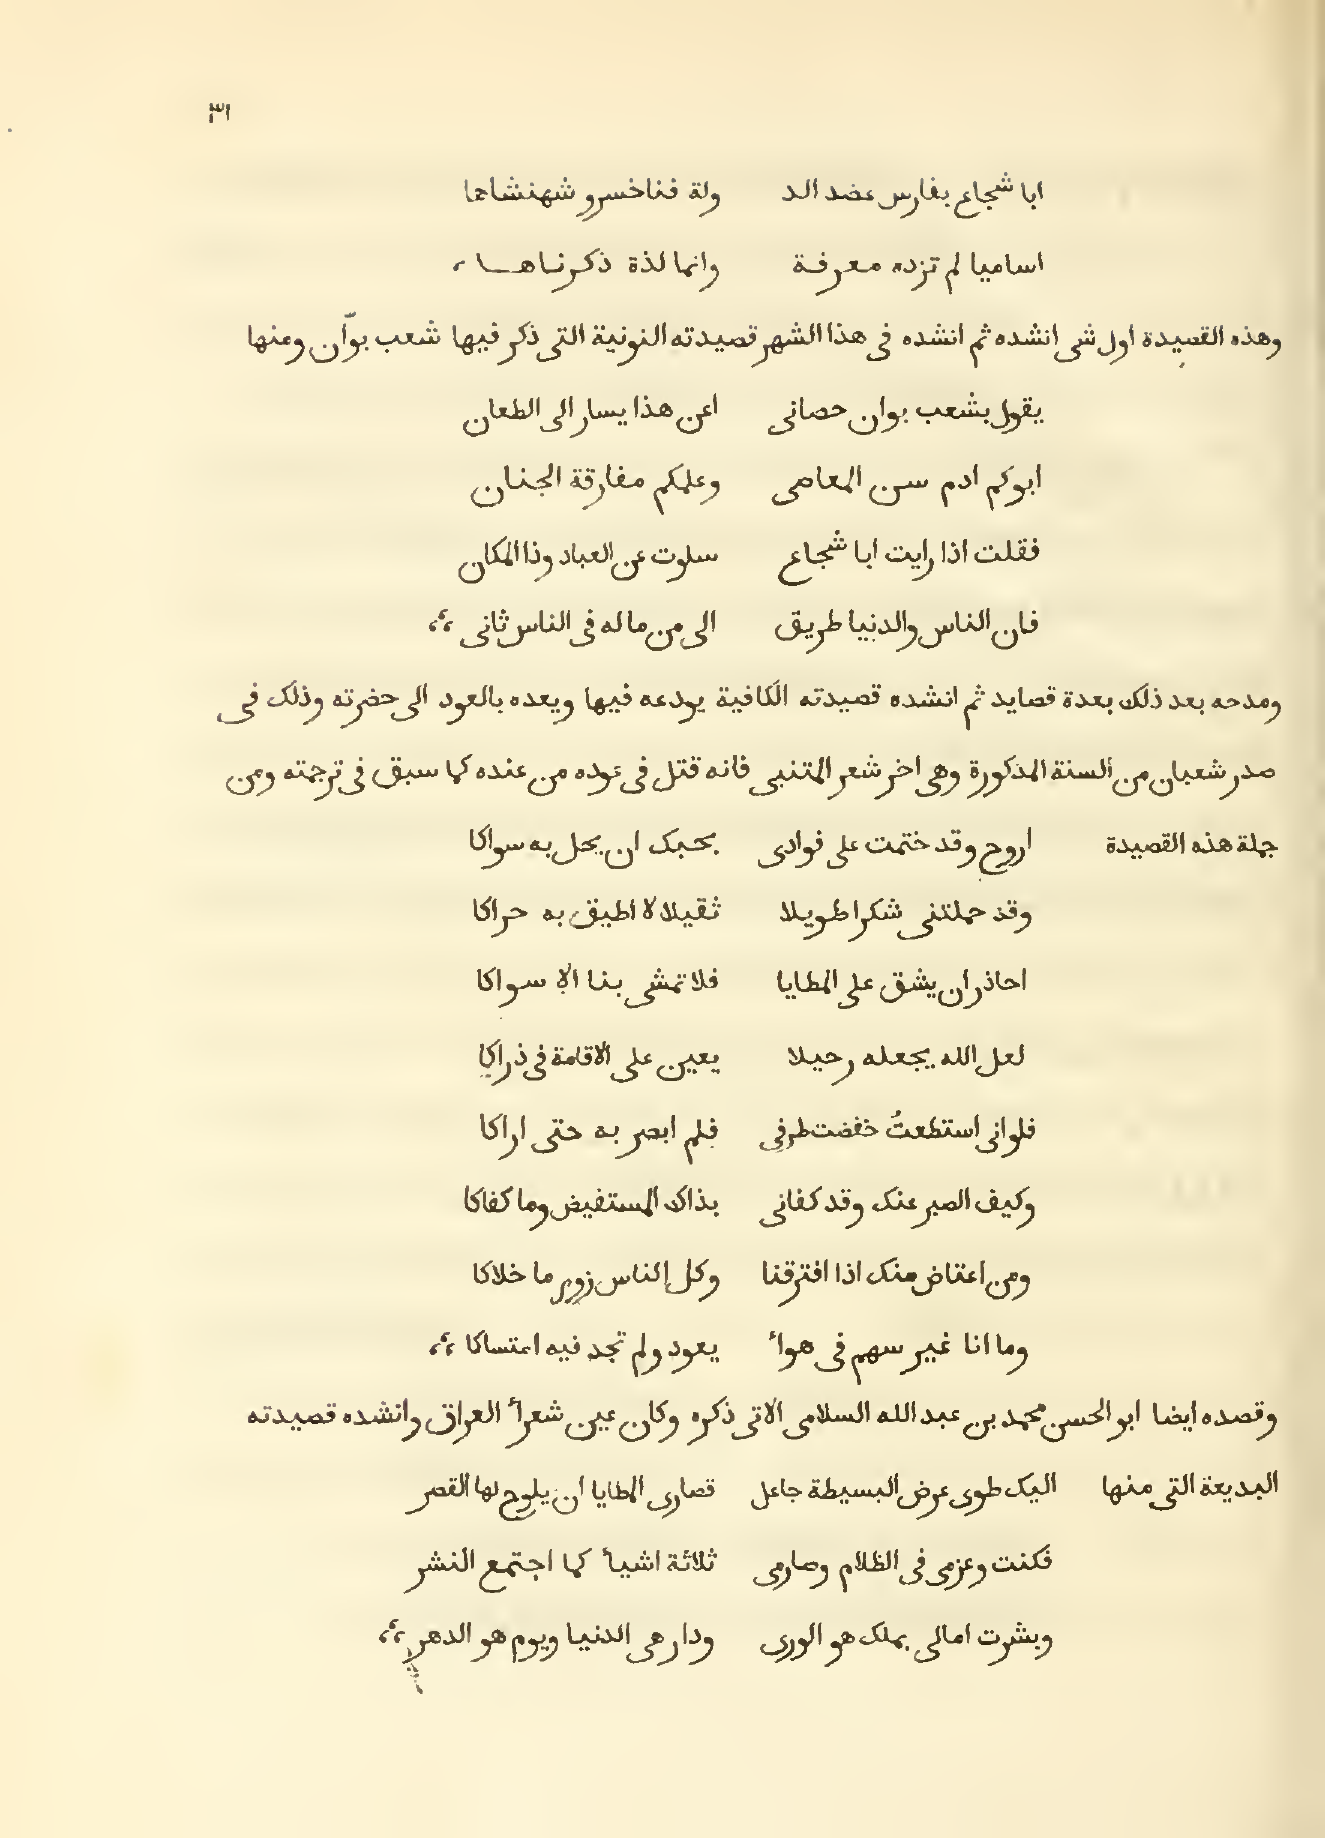 ٣١
ابا شجاع بفارس عضد الد ولة فناخسرو شهنشاها
اساميا لم تزده معرفة وانما لذة ذكرناها
وهذه القصيدة اول شى انشده ثم انشده فى هذا الشهر قصيدته النونية التى ذكر فيها شعب بوّان ومنها
يقول بشعب بوان حصانى اعن هذا يسار الى الطعان
ابوكم ادم سن المعاصى وعلمكم مفارقة الجنان
فقلت اذا رايت ابا شجاع سلوت عن العباد وذا المكان
فان الناس والدنيا طريق الى من ما له فى الناس ثانى
ومدحه بعد ذلك بعدة قصايد ثم انشده قصيدته الكافية يودعه فيها ويعده بالعود الى حضرته وذلك فى
صدر شعبان من السنة المذكورة وهى اخر شعر المتنبى فانه قتل فى عوده من عنده كما سبق فى ترجمته ومن
جملة هذه القصيدة اروح وقد ختمت على فوادى بحبك ان يحل به سواكا
وقد حملتنى شكرا طويلا ثقيلا لا اطيق به حراكا
احاذر ان يشق على المطايا فلا تمشى بنا الا سواكا
لعل الله يجعله رحيلا يعين على الاقامة فى ذراكا
فلوانى استطعتُ خفضت طرفى فلم ابصر به حتى اراكا
وكيف الصبر عنك وقد كفانى بذاك المستفيض وما كفاكا
ومن اعتاض منك اذا افترقنا وكل الناس زور ما خلاكا
وما انا غير سهم فى هواء يعود ولم تجد فيه امتساكا
وقصده ايضا ابو الحسن محمد بن عبد الله السلامى الاتى ذكره وكان عين شعراء العراق وانشده قصيدته
البديعة التى منها اليك طوى عرض البسيطة جاعل قصارى المطايا ان يلوح لها القصر
فكنت وعزمى فى الظلام وصارمى ثلاثة اشياء كما اجتمع النشر
وبشرت امالى بملك هو الورى ودار هى الدنيا ويوم هو الدهر